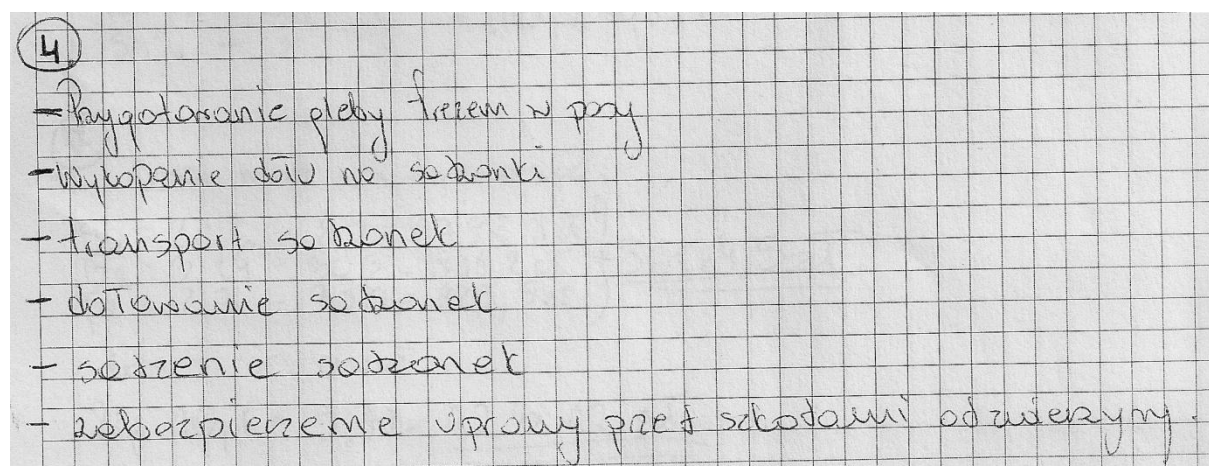 4
- Przygotowanie gleby frezem w pasy
- Wykopanie dołu na sadzonki
- transport sadzonek
- dołowanie sadzonek
- sadzenie sadzonek
- zabezpieczenie uprawy przed szkodami od zwierzyny.